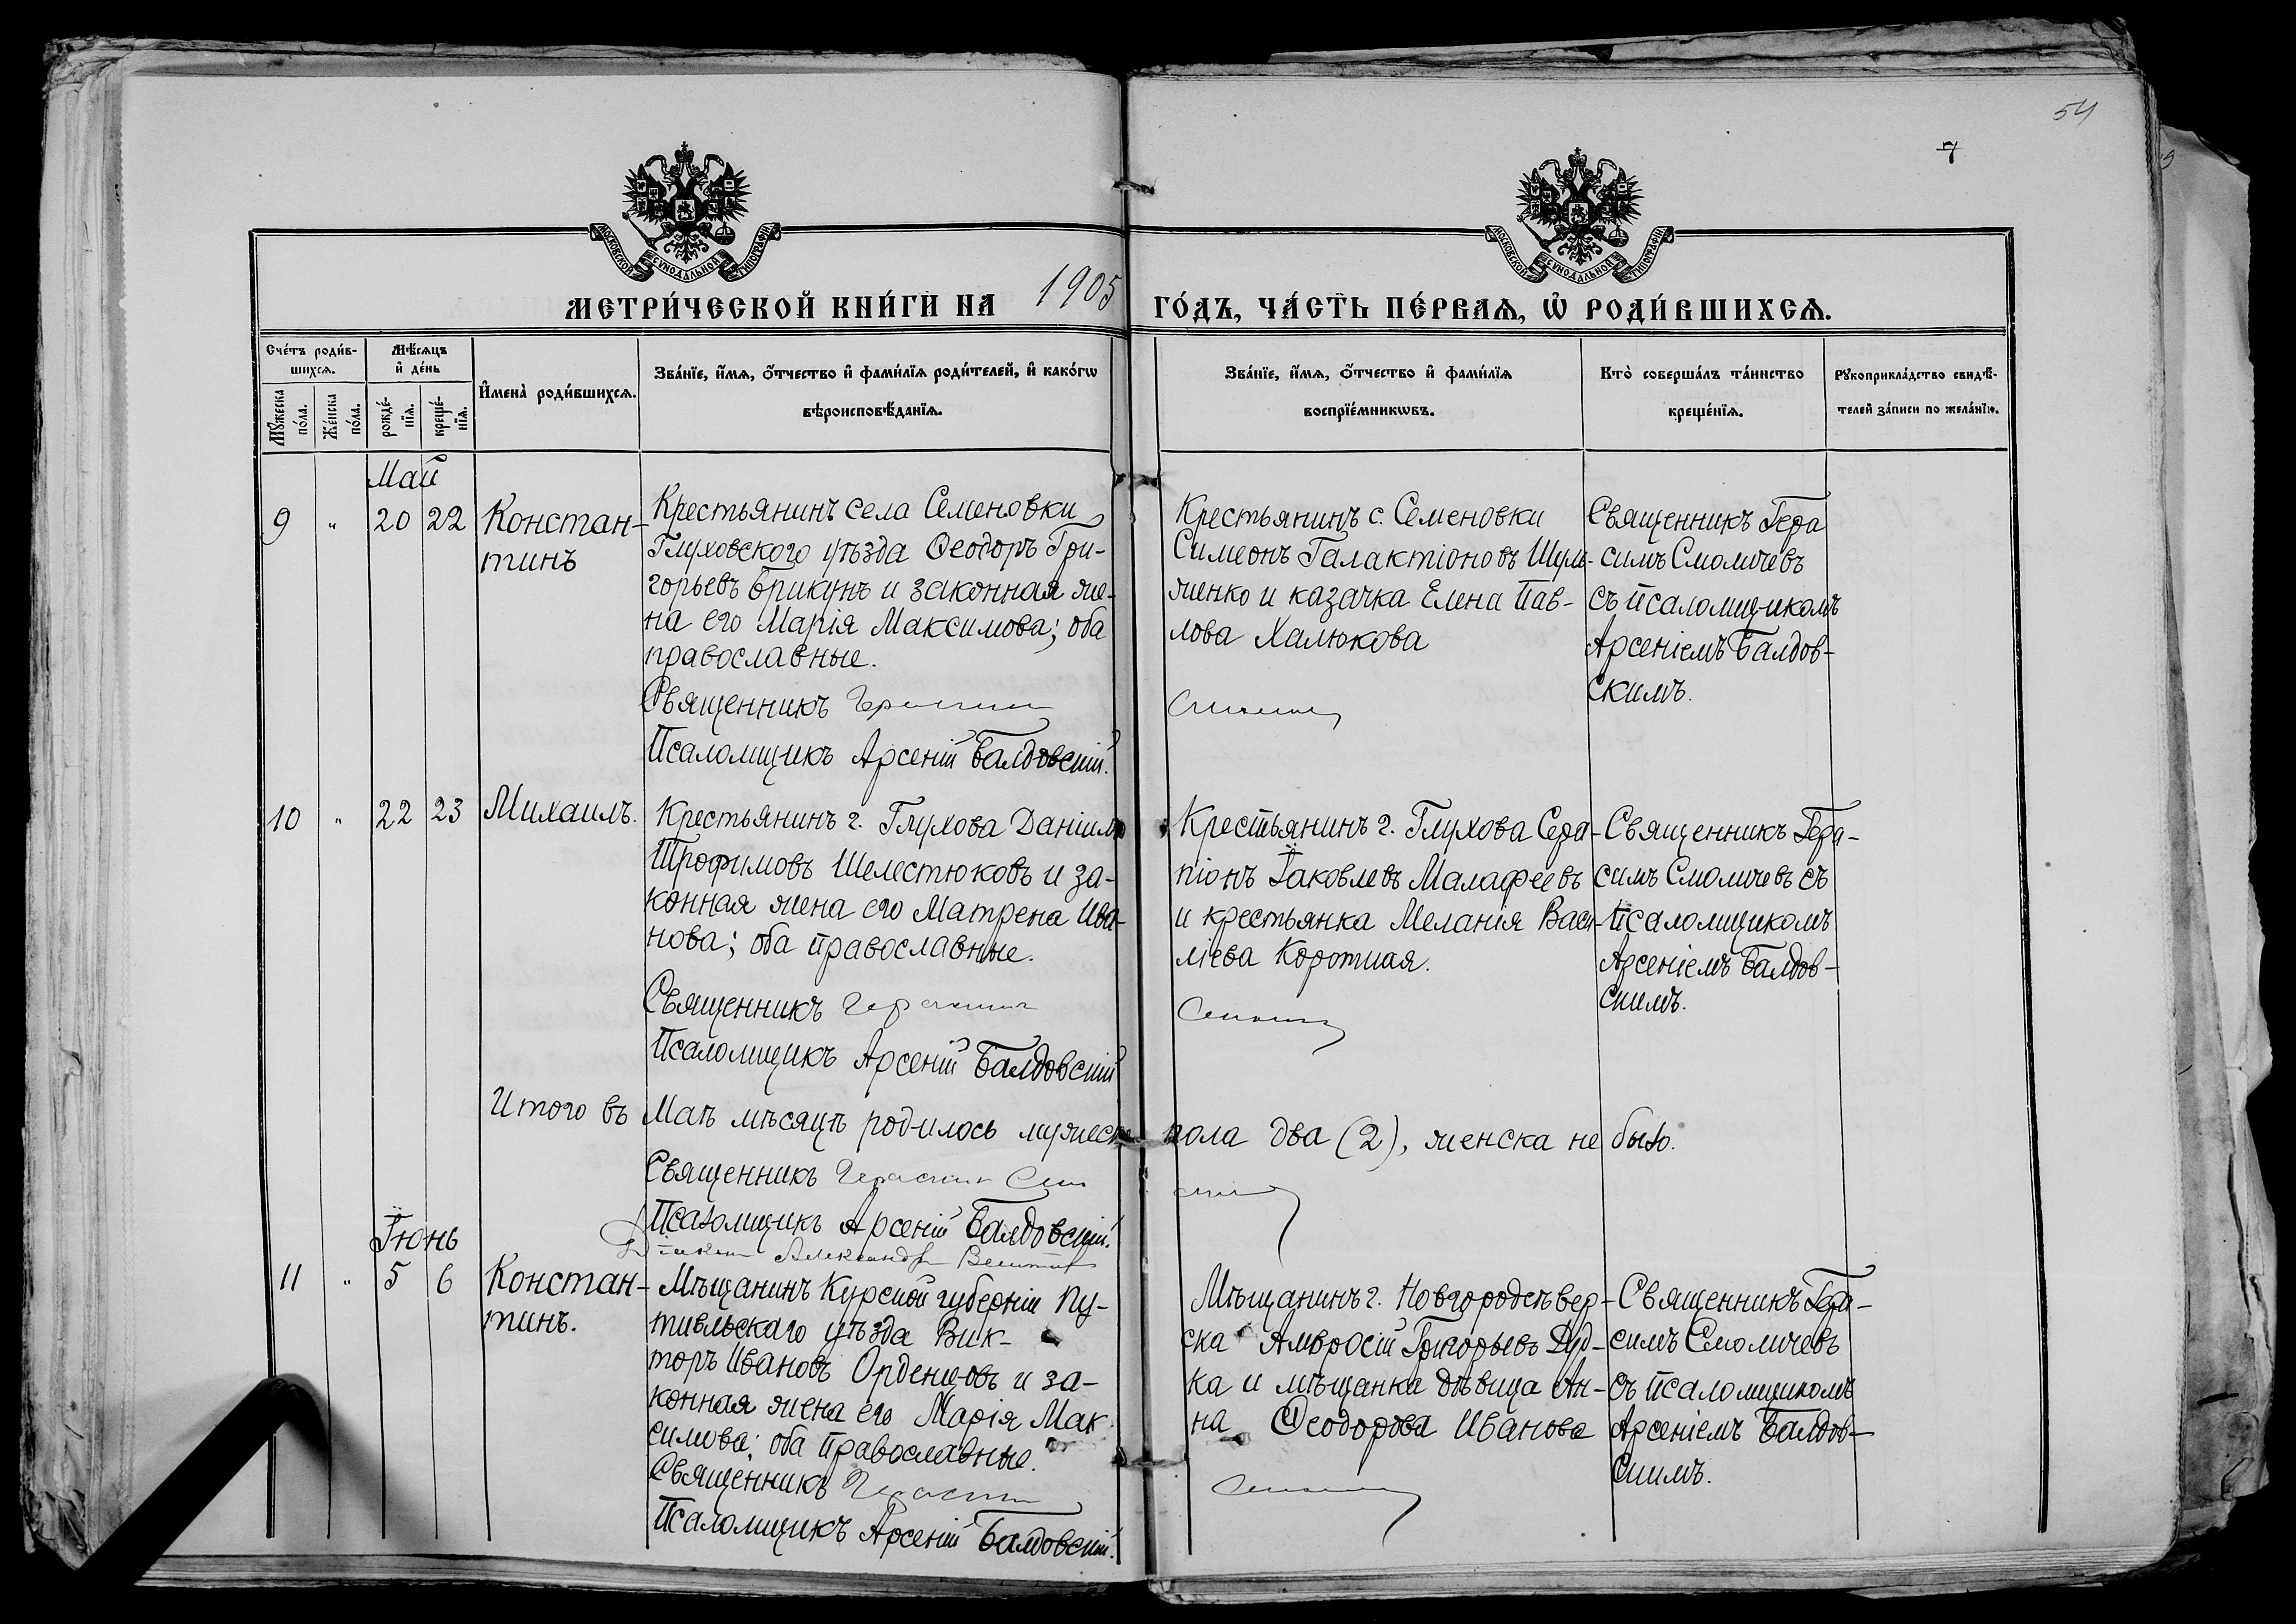 54
7
МОСКОВСКОЙ СѴНОДАЛЬНОЙ ТИПОГРАФІИ
МОСКОВСКОЙ СѴНОДАЛЬНОЙ ТИПОГРАФІИ
МЕТРИ́ЧЕСКОЙ КНИ́ГИ НА 1905 ГО́ДЪ, ЧА́СТЬ ПЕ́РВАѦ, Ѡ҆ РОДИ́ВШИХСѦ.
Сче́тъ роди́в-
шихсѧ.
Мꙋ́жеска по́ла.
Же́нска по́ла.
Мѣ́сѧцъ
и҆ де́нь
рожде́-
нїѧ.
креще́-
нїѧ.
И҆мена̀ роди́вшихсѧ.
Зва́нїе, и҆́мѧ, ѻ҆́тчество и҆ фами́лїѧ роди́телей, и҆ како́гѡ
вѣроисповѣ́данїѧ.
Зва́нїе, и҆́мѧ, ѻ҆́тчество и҆ фами́лїѧ
воспрїе́мникѡвъ.
Кто̀ соверша́лъ та́инство
креще́нїѧ.
Рꙋкоприкла́дство свидѣ́-
телей за́писи по жела́нїю.
Май
9 " 20 22
Констан-
тинъ
Крестьянинъ села Семеновки
Глуховского уѣзда Ѳеодоръ Гри-
горьевъ Брикунъ и законная же-
на его Марія Максимова; оба
православные.
Священникъ Герасим
Псаломщикъ Арсеній Балдовскій.
Крестьянинъ с. Семеновки
Симеонъ Галактіоновъ Шуль-
женко и казачка Елена Пав-
лова Халюкова
Священникъ Гера
симъ Смоличевъ
съ псаломщикомъ
Арсеніемъ Балдов-
скимъ.
10 " 22 23
Михаилъ.
Крестьянинъ г. Глухова Даніилъ
Трофимовъ Шелестюковъ и за-
конная жена его Матрена Ива-
нова; оба православные.
Священникъ Герасим
Псаломщикъ Арсеній Балдовскій
Крестьянинъ г. Глухова Сера-
піонъ Іаковлевъ Малафеевъ
и крестьянка Меланія Васи-
ліева Короткая.
Священникъ Гера-
симъ Смоличевъ съ
псаломщикомъ
Арсеніемъ Балдов-
скимъ.
Итого въ Маѣ мѣсяцѣ родилось мужеска пола два (2), женска не было.
Священникъ Герасим
Псаломщикъ Арсеній Балдовскій.
Александр
Іюнь
11 " 5 6
Констан-
тинъ.
Мѣщанинъ Курской губерніи Пу-
тивльскаго уѣзда Вик-
торъ Ивановъ Орденцовъ и за-
конная жена его Марія Мак
симова; оба православные.
Священникъ Герасим
Псаломщикъ Арсеній Балдовскій.
Мѣщанинъ г. Новгородсѣвер-
ска Амвросій Григорьевъ Дуд-
ка и мѣщанка дѣвица Ан-
на Ѳеодорова Иванова
Священникъ Гера-
симъ Смоличевъ
съ псаломщикомъ
Арсеніемъ Балдов-
скимъ.